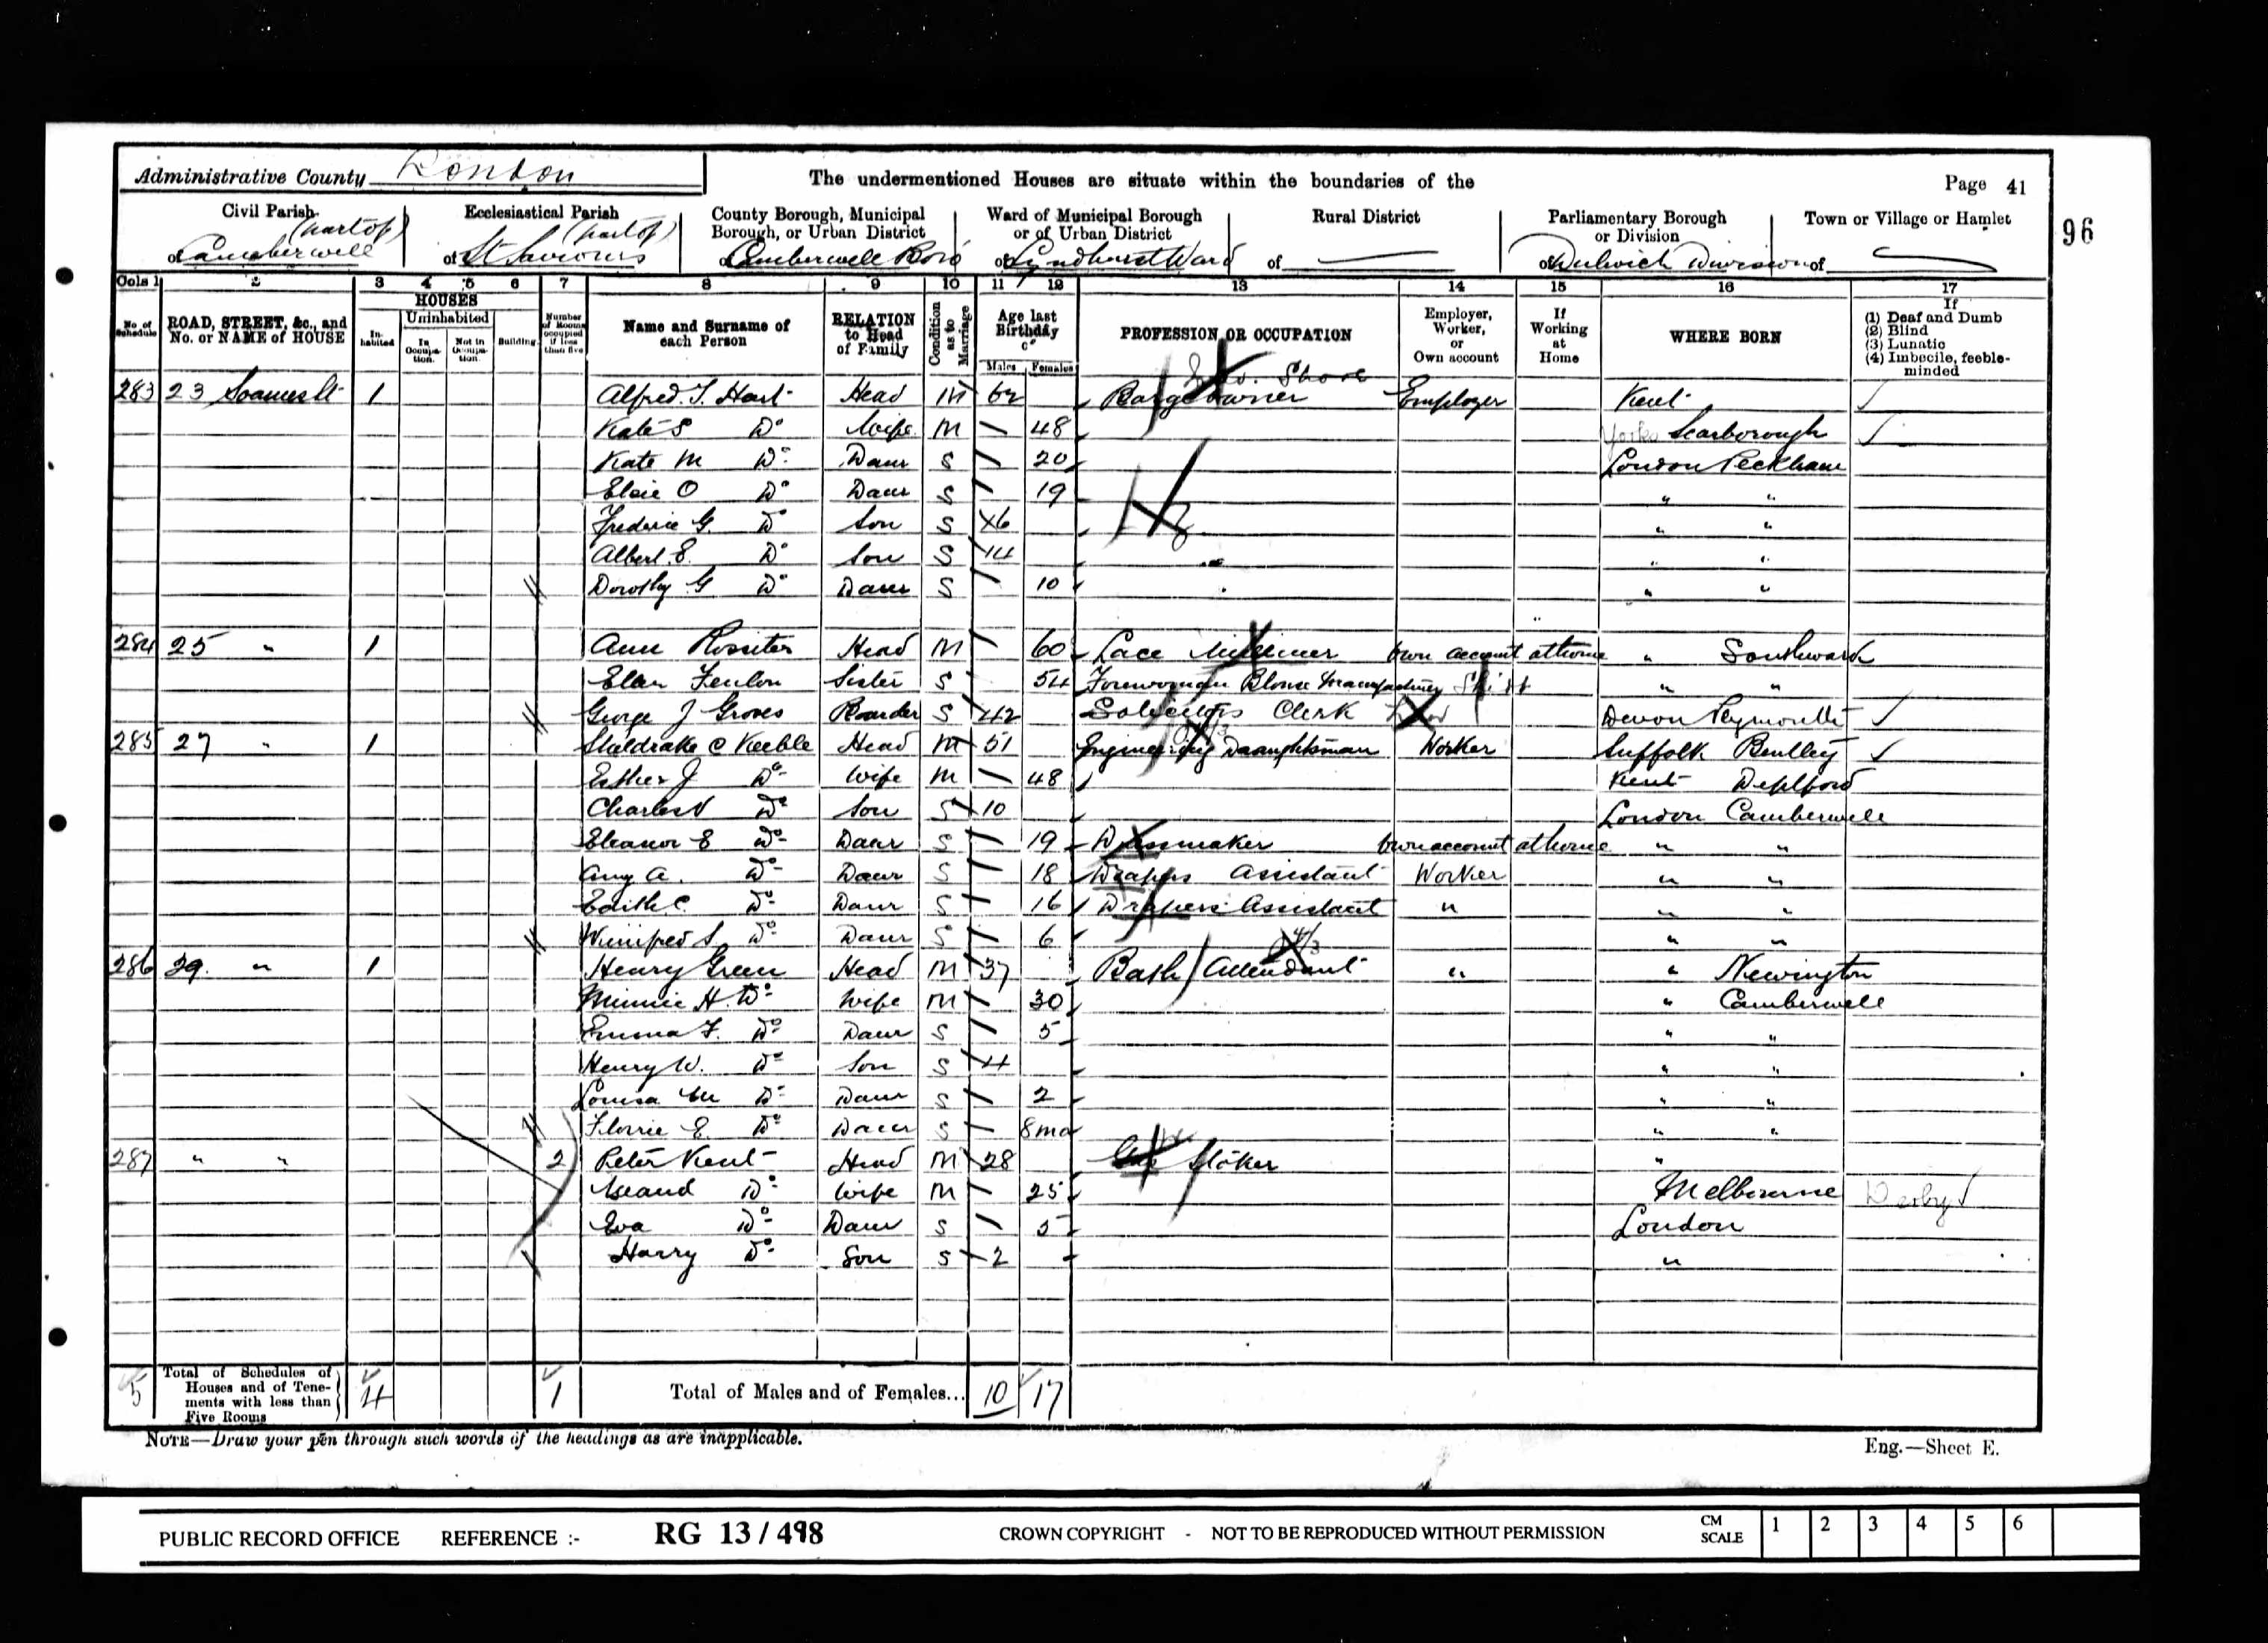 Administrative County London
The undermentioned Houses are situate within the boundaries of the
Page 41
96
Civil Parish (part of) of Camberwell
Ecclesiastical Parish (part of) of St Saviours
County Borough, Municipal Borough, or Urban District of Camberwell Boro
Ward of Municipal Borough or of Urban District of Lyndhurst Ward
Rural District of
Parliamentary Borough or Division of Dulwich Division
Town or Village or Hamlet of
Cols 1 2 3 4 5 6 7 8 9 10 11 12 13 14 15 16 17
No of Schedule
ROAD, STREET, &c., and No. or NAME of HOUSE
HOUSES
Inhabited
Uninhabited
In Occupation.
Not in Occupation.
Building
Number of Rooms occupied if less than five
Name and Surname of each Person
RELATION to Head of Family
Condition as to Marriage
Age last Birthday of
Males Females
PROFESSION OR OCCUPATION
Employer, Worker, or Own account
If Working at Home
WHERE BORN
If
(1) Deaf and Dumb
(2) Blind
(3) Lunatic
(4) Imbecile, feeble-minded
283 23 Soames St 1 Alfred. T. Hart Head M 62 Barge Owner Employer Kent
Kate S Do Wife M 48 Yorks Scarborough
Kate M Do Daur S 20 London Peckham
Elsie O Do Daur S 19 " "
Frederic G. Do Son S 16 " "
Albert. E. Do Son S 14 " "
Dorothy G Do Daur S 10 " "
284 25 " 1 Ann Rossiter Head M 60 Lace Milliner Own account at home " Southwark
Ellen Fenlon Sister S 54 Forewoman Blouse Manufactury " "
George J Groves Boarder S 42 Solicitors Clerk Devon Plymouth
285 27 " 1 Sheldrake C Keeble Head M 51 Engineering Draughtsman Worker Suffolk Bentley
Esther J Do Wife M 48 Kent Deptford
Charles V Do Son S 10 London Camberwell
Eleanor E Do Daur S 19 Dressmaker Own account at home " "
Amy A. Do Daur S 18 Drapers Assistant Worker " "
Edith C. Do Daur S 16 Drapers Assistant " " "
Winifred S. Do Daur S 6 " "
286 29. " 1 Henry Green Head M 37 Bath Attendant " " Newington
Minnie H. Do Wife M 30 " Camberwell
Emma F. Do Daur S 5 " "
Henry W. Do Son S 4 " "
Louisa M Do Daur S 2 " "
Florrie E Do Daur S 8 mo " "
287 " " 2 Peter Kent Head M 28 Gas Stoker "
Maud Do Wife M 25 Melbourne Derby
Eva Do Daur S 5 London
Harry Do Son S 2 "
5 Total of Schedules of Houses and of Tenements with less than Five Rooms 4 1 Total of Males and of Females... 10 17
NOTE—Draw your pen through such words of the headings as are inapplicable.
Eng.—Sheet E.
PUBLIC RECORD OFFICE REFERENCE :- RG 13 / 498 CROWN COPYRIGHT - NOT TO BE REPRODUCED WITHOUT PERMISSION CM SCALE 1 2 3 4 5 6